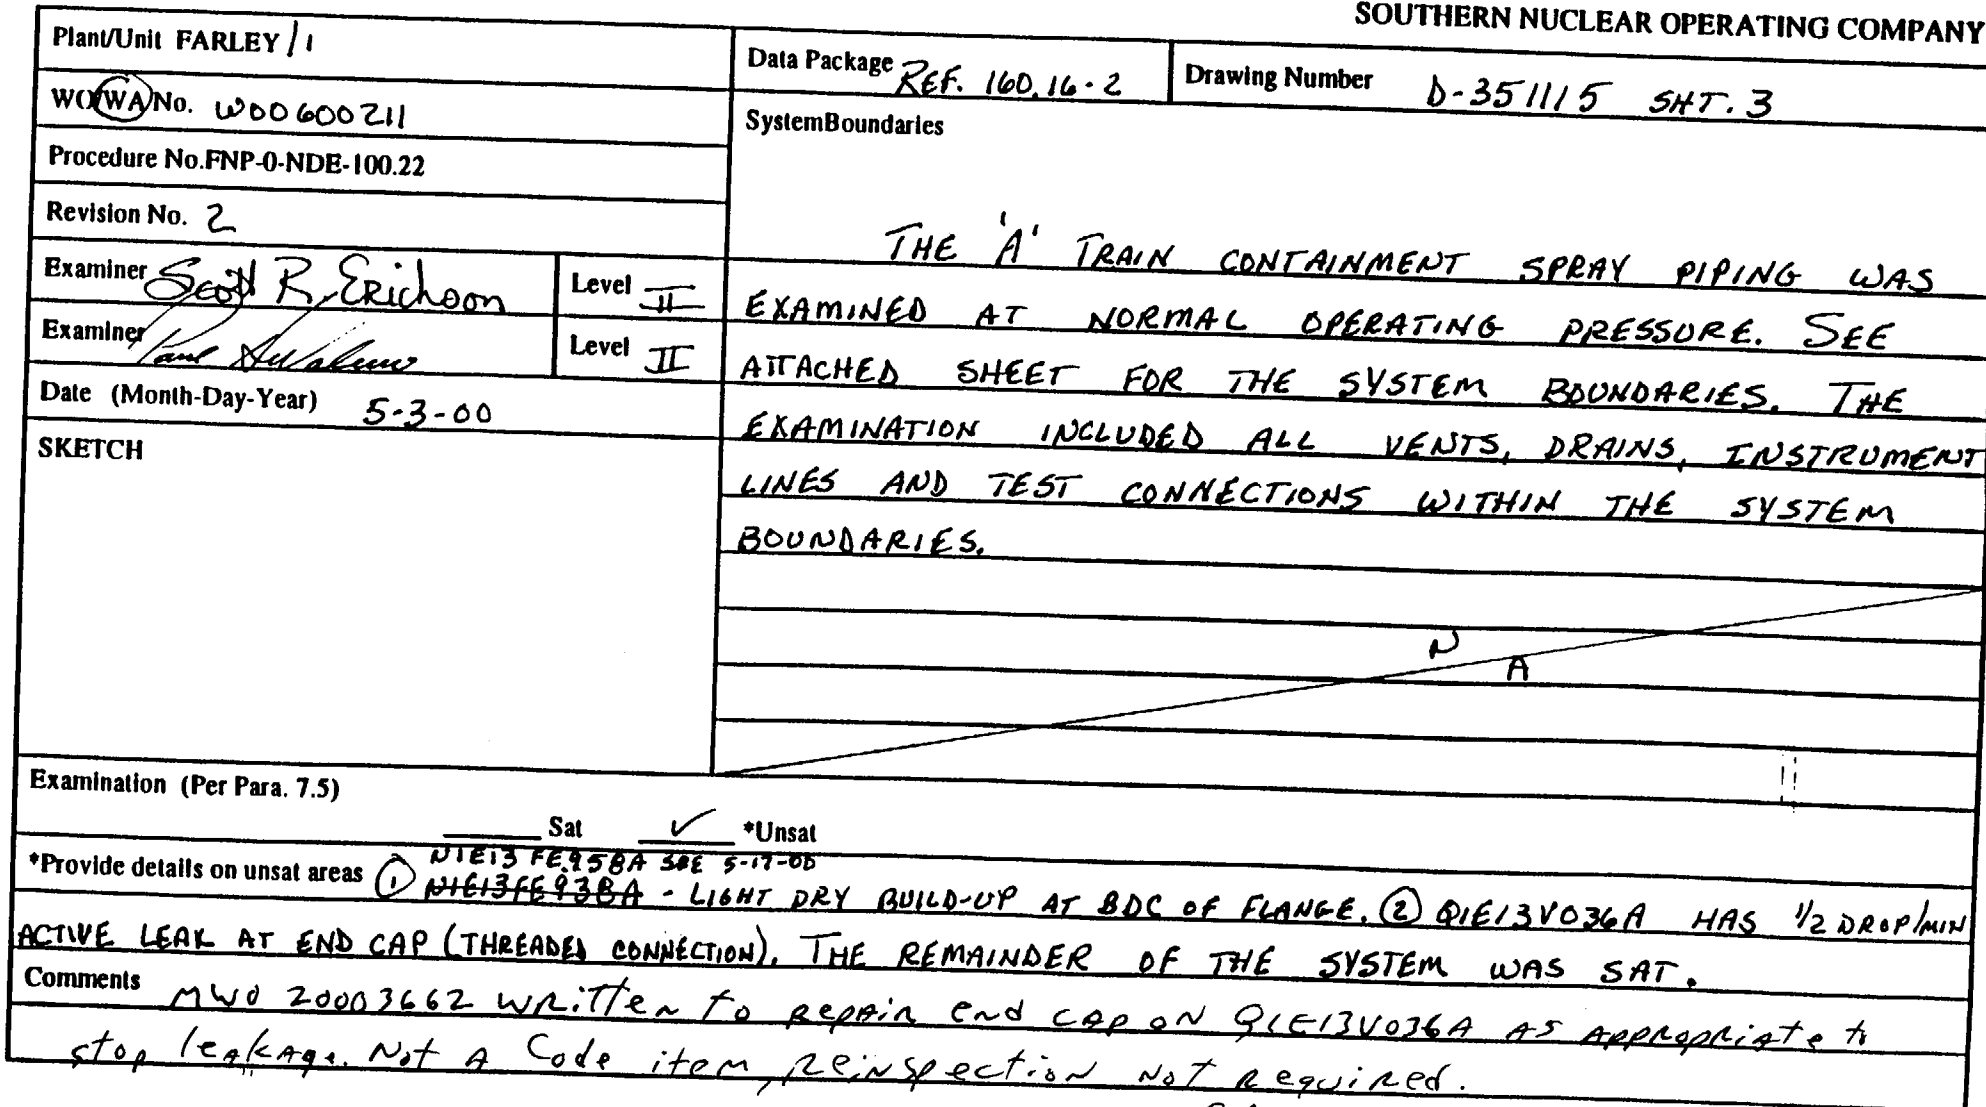 SOUTHERN NUCLEAR OPERATING COMPANY
Plant/Unit FARLEY / 1
Data Package REF. 160.16-2
Drawing Number D-351115 SHT. 3
WO/WA No. W00600211
Procedure No.FNP-0-NDE-100.22
Revision No. 2
Examiner Scott R. Erickson Level II
Examiner Paul Level II
Date (Month-Day-Year) 5-3-00
SKETCH
SystemBoundaries
THE 'A' TRAIN CONTAINMENT SPRAY PIPING WAS
EXAMINED AT NORMAL OPERATING PRESSURE. SEE
ATTACHED SHEET FOR THE SYSTEM BOUNDARIES. THE
EXAMINATION INCLUDED ALL VENTS, DRAINS, INSTRUMENT
LINES AND TEST CONNECTIONS WITHIN THE SYSTEM
BOUNDARIES.
N A
Examination (Per Para. 7.5)
____ Sat ✓ *Unsat
N1E13 FE958A SRE 5-17-00
*Provide details on unsat areas ① N1E13FE938A - LIGHT DRY BUILD-UP AT BDC OF FLANGE. ② Q1E13V036A HAS 1/2 DROP/MIN
ACTIVE LEAK AT END CAP (THREADED CONNECTION). THE REMAINDER OF THE SYSTEM WAS SAT.
Comments MWO 20003662 written to repair end cap on Q1E13V036A as appropriate to
stop leakage. Not a Code item, reinspection not required.